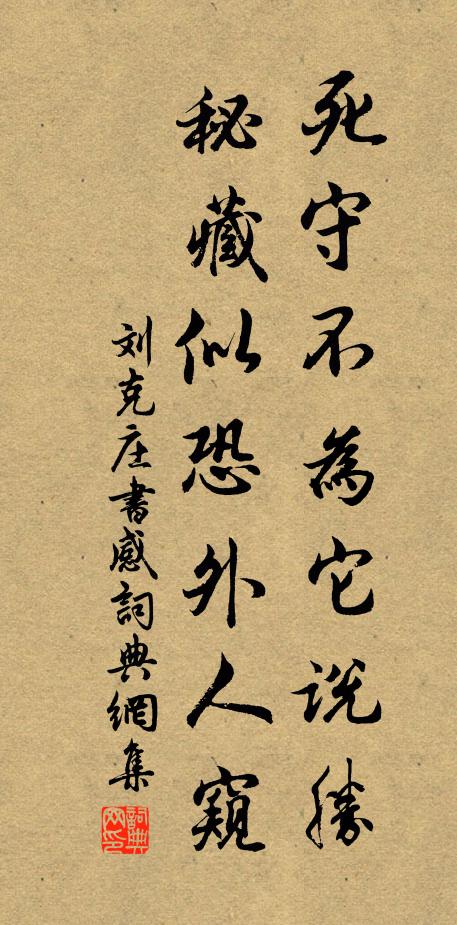 死守不為它說勝
秘藏似恐外人窺
刘克庄書感詞典網集
詞典网印